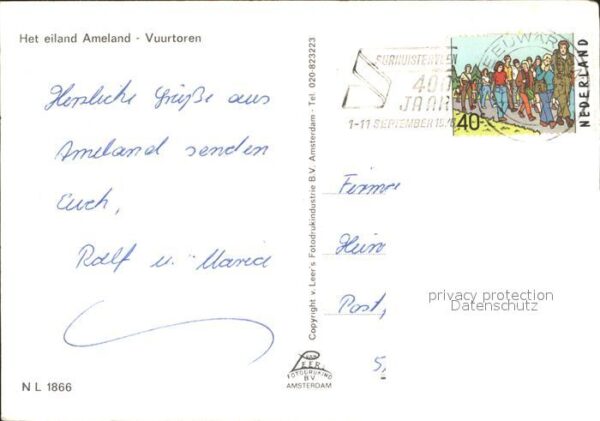 Het eiland Ameland - Vuurtoren
Herzliche Grüße aus
Ameland senden
Euch,
Ralf u. Maria
N L 1866
Copyright v. Leer's Fotodrukindustrie B.V. Amsterdam - Tel. 020-823223
VAN
LEER
FOTODRUKIND
B.V.
AMSTERDAM
400
JAAR
1-11 SEPTEMBER
LEEUWAR
40
NEDERLAND
Firma
Hein
Post,
5,
privacy protection
Datenschutz